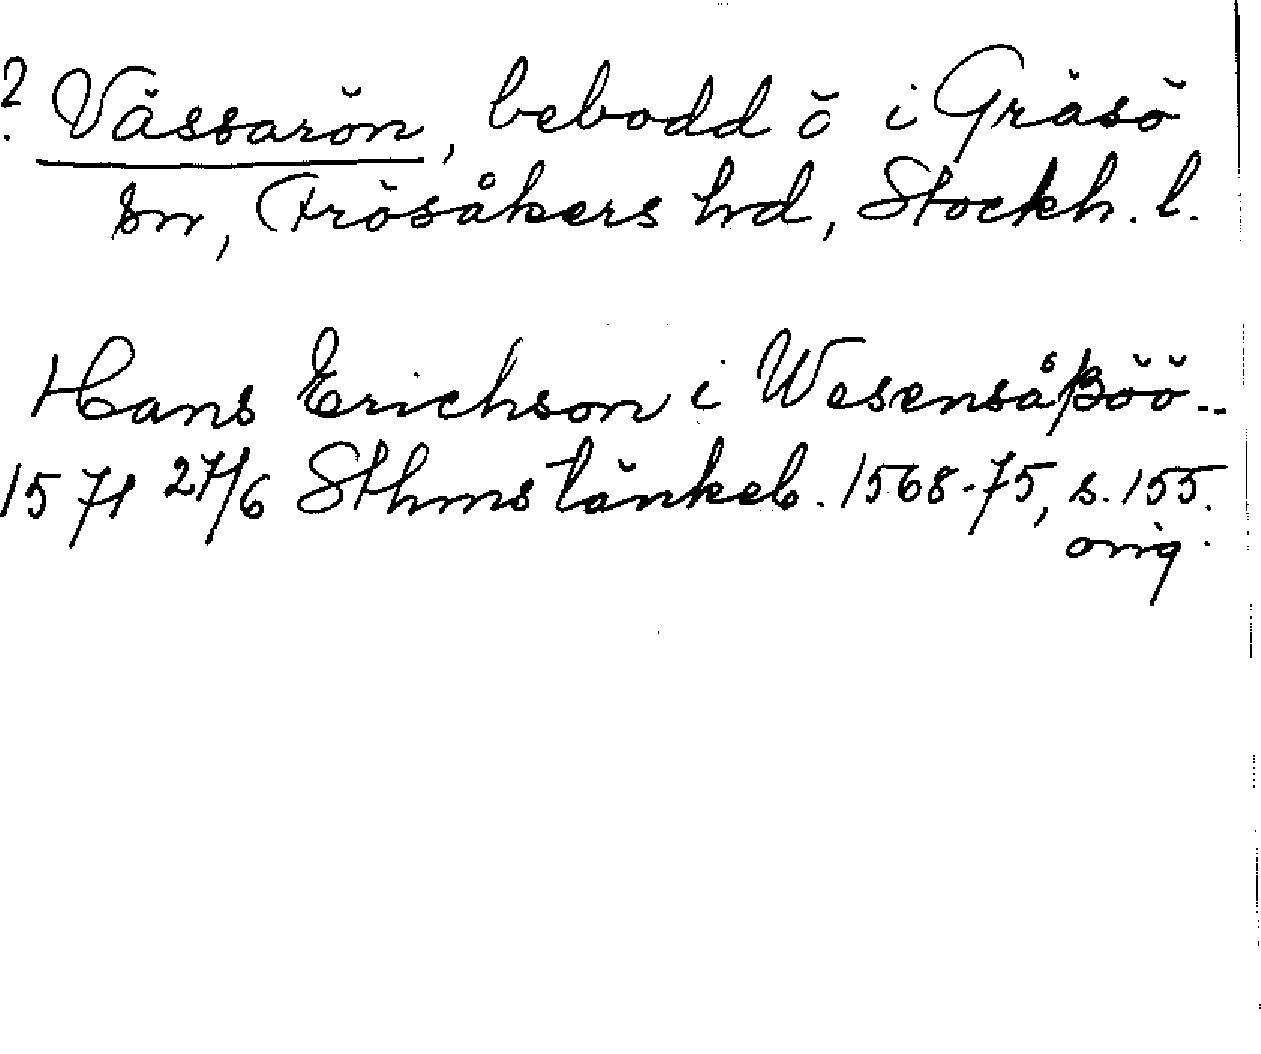 ? Vässarön, bebodd ö i Gräsö
sn, Frösåkers hd, Stockh. l.
Hans Erichson i Wesensåßöö..
1571 27/6 Sthms tänkeb. 1568-75, s. 155.
orig.